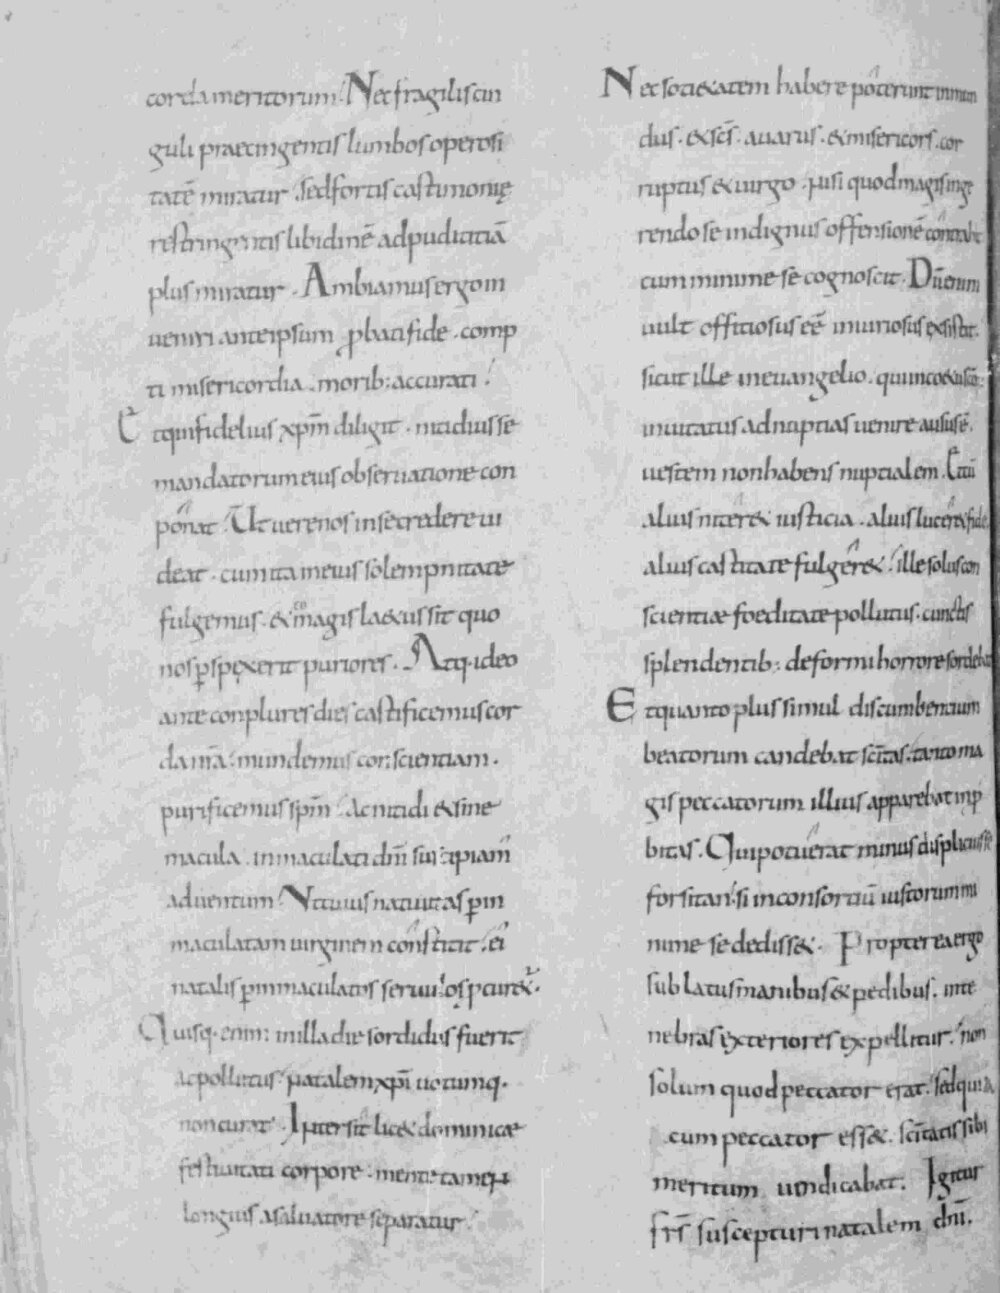 corda meritorum. Nec fragilis cin
guli praecingentis lumbos operosi
tatē miratur. sed fortis castimonię
restringentis libidinē ad pudicitiā
plus miratur. Ambiamus ergo in
veniri ante ipsum ꝓbati fide. comp
ti misericordia. morib: accurati.
Et qui fidelius xp̄m diligit. nitidius se
mandatorum eius observatione con
ponat. Ut vere nos in se credere vi
deat. cum ita in eius solempnitate
fulgemus. & magis laetus sit quo
nos ꝑspexerit puriores. Atq. ideo
ante conplures dies castificemus cor
da nr̄a. mundemus conscientiam.
purificemus sp̄m. Ac nitidi & sine
macula. inmaculati dn̄i suscipiam
adventum. Ut cuius nativitas ꝑ in
maculatam virginem constitit. ei
natalis ꝑ inmaculatos servulos pcur&.
Quisq. enim in illa die sordidus fuerit
ac pollutus natalem xp̄i votumq.
non curat. Inter sit lic& dominicae
festivitati corpore. mente tamen
longius a salvatore separatur.
Nec societatem habere poterunt inmun
dus. & sc̄s. avarus. & misericors. cor
ruptus & virgo. nisi quod magis inge
rendo se indignus offensionē contrahit
cum minime sē cognoscit. Dū enim
vult offitiosus eē iniuriosus existit.
sicut ille in evangelio. qui in co&u sc̄o:
invitatus ad nuptias venire ausus ē.
vestem non habens nuptialem. Et cū
alius niter& iusticia. alius lucer& fide.
alius castitate fulger&. ille solus con
scientiae foeditate pollutus. cunctis
splendentib: deformi horrore sordebat
Et quanto plus simul discumbentium
beatorum candebat sc̄itas. tanto ma
gis peccatorum illius apparebat inp̱
bitas. Qui potuerat minus displicuisse
forsitan. si in consortiū iustorum mi
nime se dediss&. Propterea ergo
sublatus manibus & pedibus. inte
nebras exteriores expellitur. non
solum quod peccator erat. sed quia
cum peccator ess&. sc̄itatis sibi
meritum vindicabat. Igitur
fr̄s suscepturi natalem dn̄i.